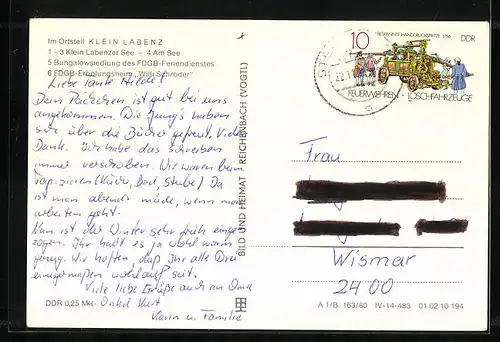 Im Ortsteil KLEIN LABENZ
1 - 3 Klein Labenzer See - 4 Am See
5 Bungalowsiedlung des FDGB-Feriendienstes
6 FDGB-Erholungsheim „Willi Schröder"
Liebe Tante Hilde!
Dein Päckchen ist gut bei uns
angekommen. Die Jung's haben
sich über die Bücher gefreut. Vielen
Dank. Ich habe das schreiben
immer verschoben. Wir waren beim
Tapezieren (Küche, Bad, Stube) Da
ist man abends müde, wenn man
arbeiten geht.
Nun ist der Winter sehr früh einge
zogen. Ihr habt es ja wohl warm
genug. Wir hoffen, daß Ihr alle Drei
einigermaßen wohlauf seit.
Viele liebe Grüße auch an Oma
DDR 0,25 M
Onkel Kurt
Karin u. Familie
BILD UND HEIMAT REICHENBACH (VOGTL)
10
BESPANNTE HANDDRUCKSPRITZE 1756
DDR
FEUERWEHREN - LÖSCHFAHRZEUGE
Frau
Wismar
2400
A 1/B 163/80 IV-14-483 01 02 10 194